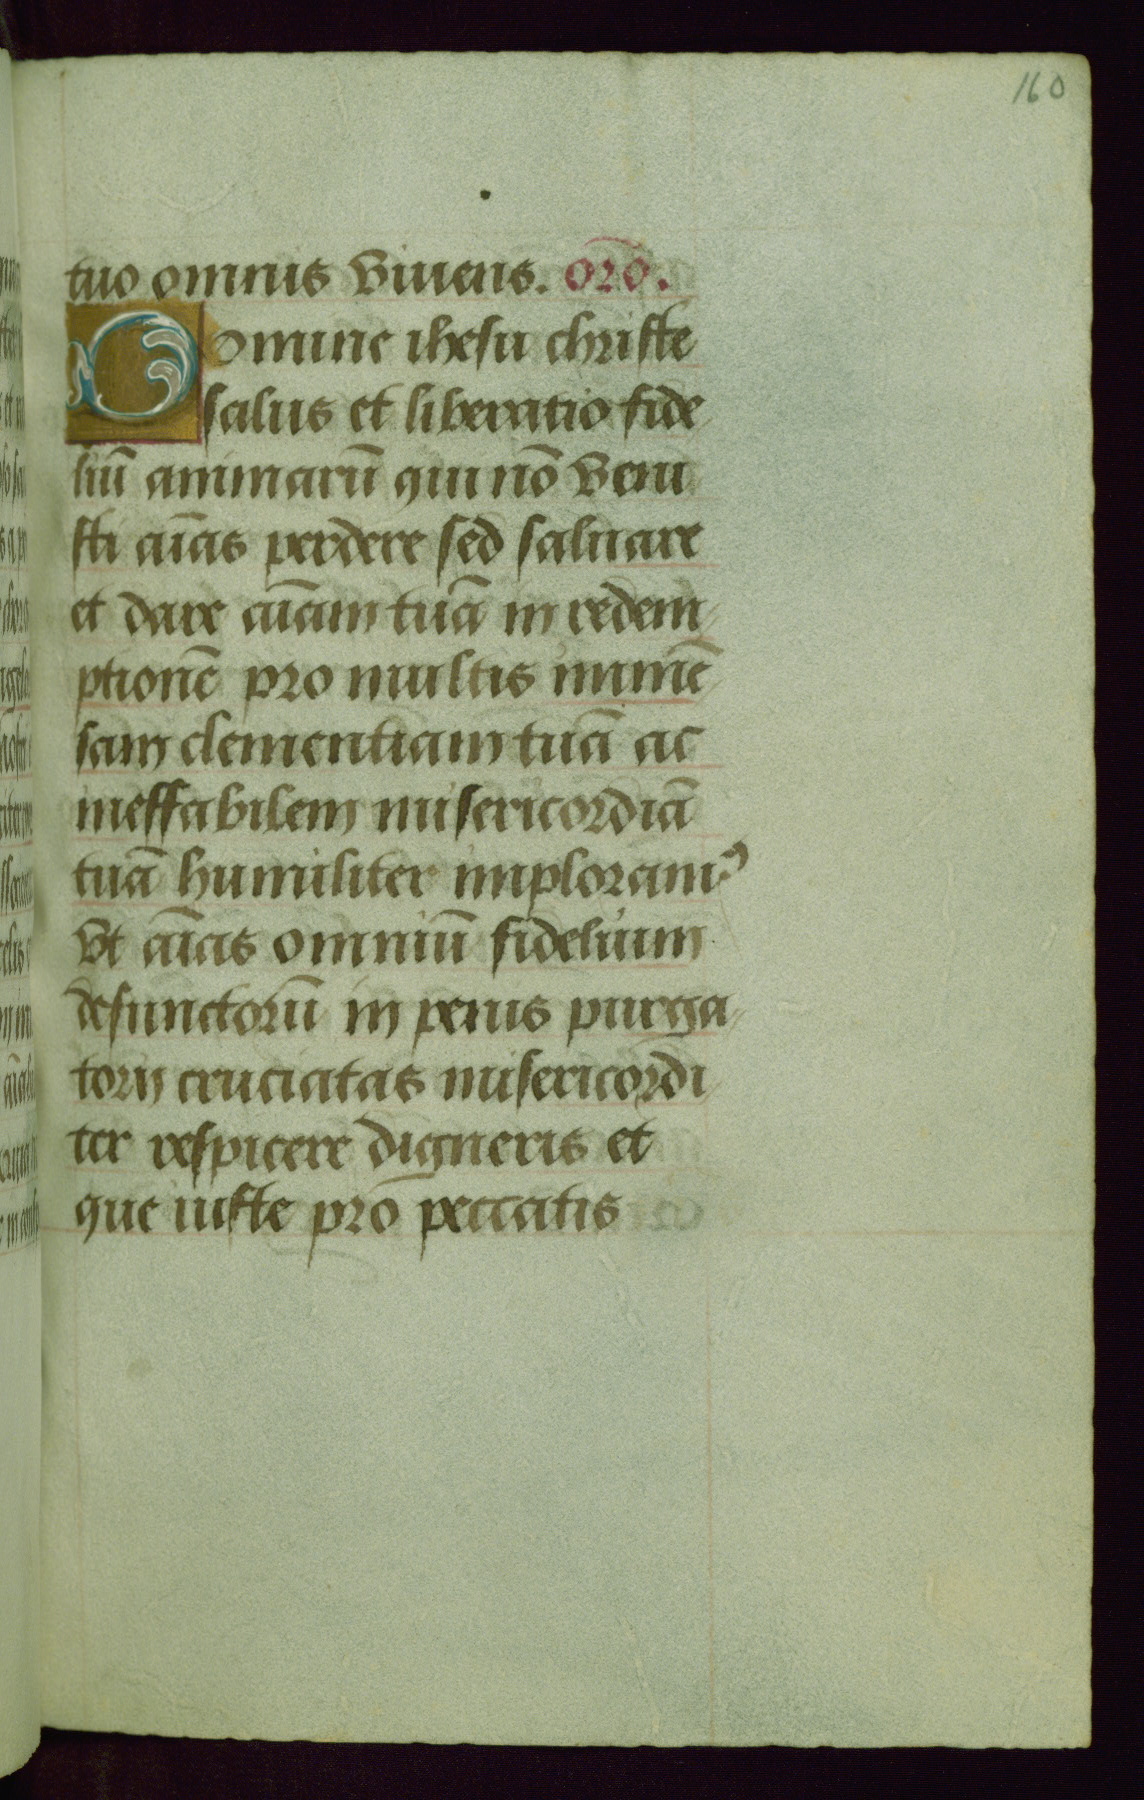 160
tuo omnis viuens. oro̅.
Domine ihesu christe
salus et liberatio fide
liu̅ animaru̅ qui no̅ veni
sti a̅i̅as perdere sed saluare
et dare a̅i̅am tua̅ in redem
ptione̅ pro multis imme̅
sam clementiam tua̅ ac
ineffabilem misericordia̅
tua̅ humiliter imploramꝰ
vt a̅i̅as omniu̅ fidelium
defunctoru̅ in penis purga
torij cruciatas misericordi
ter respicere digneris et
que iuste pro peccatis